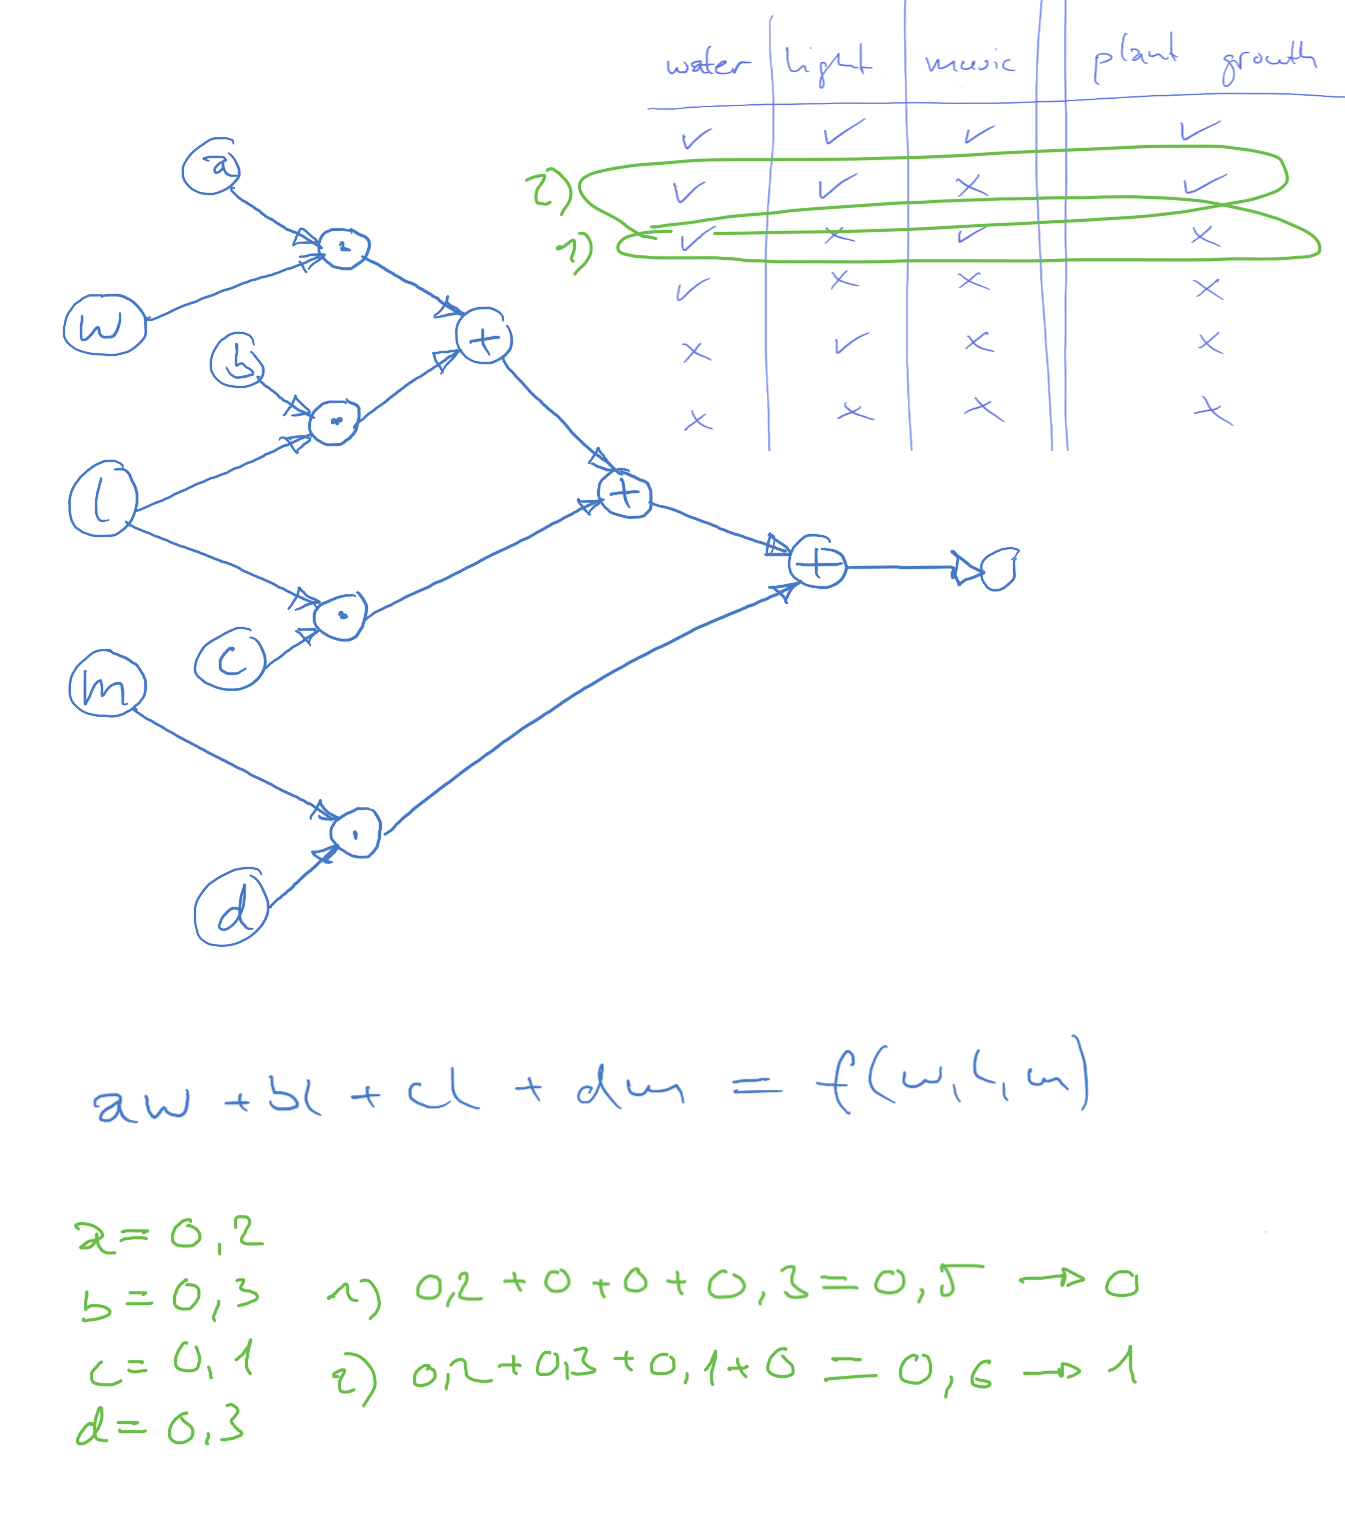 water light music plant growth
✓ ✓ ✓ ✓
2) ✓ ✓ × ✓
1) ✓ × ✓ ×
✓ × × ×
× ✓ × ×
× × × ×
a
·
w
+
b
·
l
+
+
·
c
m
·
d
aw + bl + cl + dm = f(w, l, m)
a = 0,2
b = 0,3
1) 0,2 + 0 + 0 + 0,3 = 0,5 → 0
c = 0,1
2) 0,2 + 0,3 + 0,1 + 0 = 0,6 → 1
d = 0,3